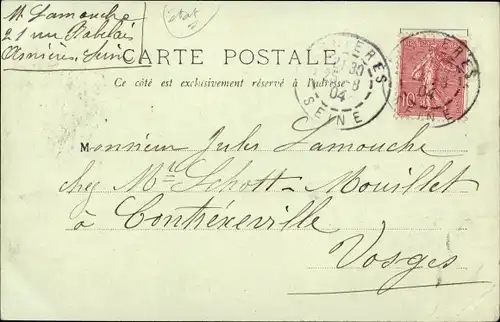 M. Lamouche
21 rue Rabelais
Asnières Seine
état
CARTE POSTALE
Ce côté est exclusivement réservé à l'adresse
ASNIERES
04
SEINE
10
Monsieur Jules Lamouche
chez Mr. Schott-Mouillet
à Contréxeville
Vosges